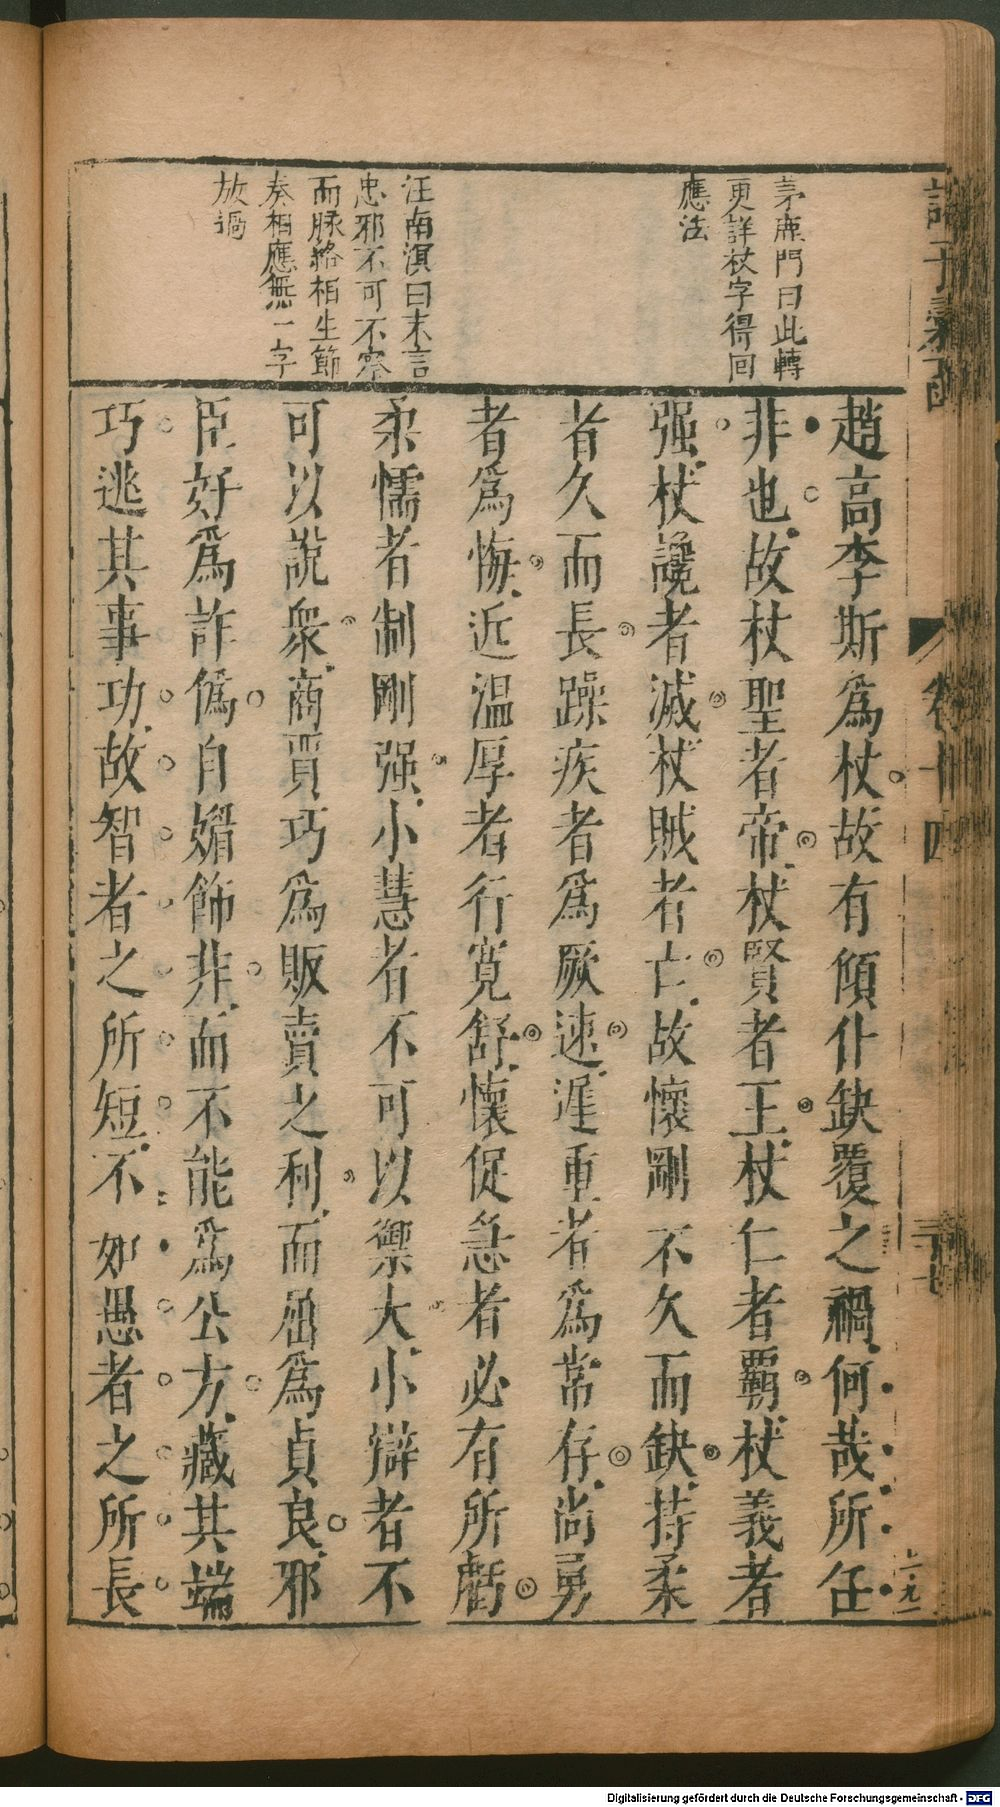 茅鹿門曰此轉
更詳杖字得囘
應法
汪南溟曰末言
忠邪不可不察
而脉絡相生節
奏相應無一字
放過
趙高李斯爲杖故有傾仆缺覆之禍何哉所任
非也故杖聖者帝杖賢者王杖仁者覇杖義者
强杖讒者滅杖賊者亡故懷剛不久而缺持柔
者久而長躁疾者爲厥速遲重者爲常存尚勇
者爲悔近温厚者行寛舒懷促急者必有所虧
柔懦者制剛强小慧者不可以禦大小辯者不
可以說衆商賈巧爲販賣之利而屈爲貞良邪
臣好爲詐僞自媚飾非而不能爲公方藏其端
巧逃其事功故智者之所短不如愚者之所長
卷十四
Digitalisierung gefördert durch die Deutsche Forschungsgemeinschaft - DFG